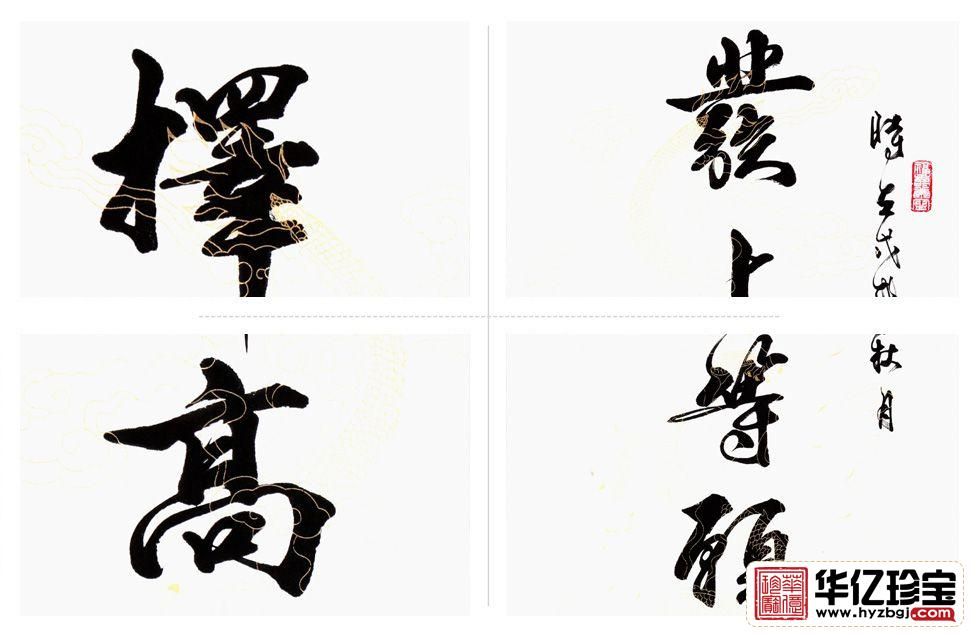 擇
高
發上
等願
時在戊戌
秋月
华亿珍宝
www.hyzbgj.com